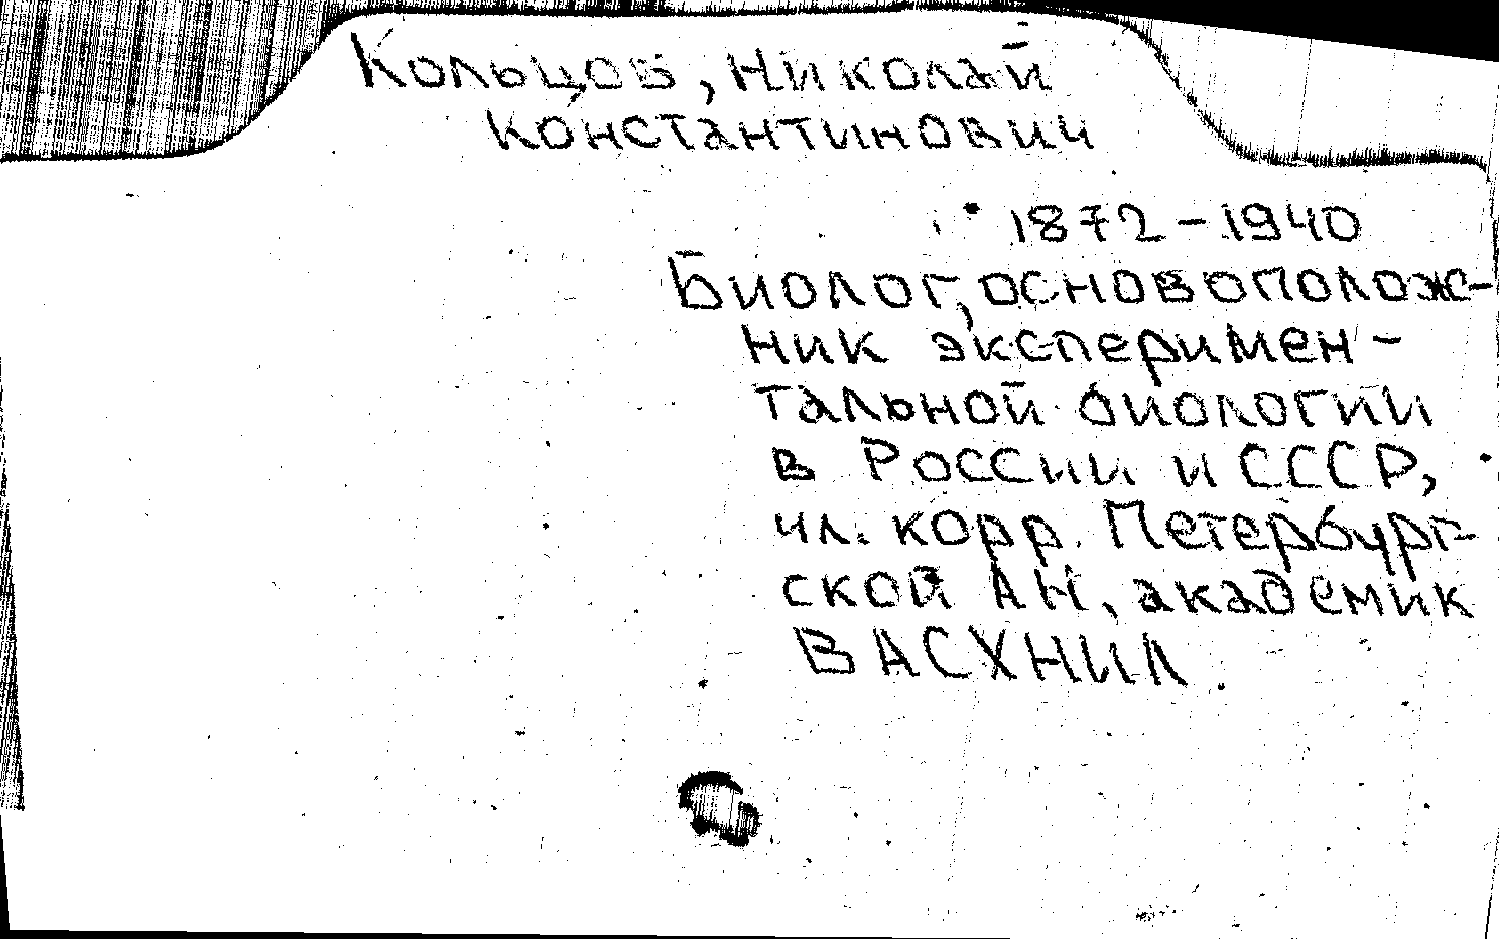 Кольцов, Николай
Константинович
1872-1940
Биолог, основополож-
ник эксперимен-
тальной биологии
в России и СССР,
чл. корр. Петербург-
ской АН, академик
ВАСХНИЛ.